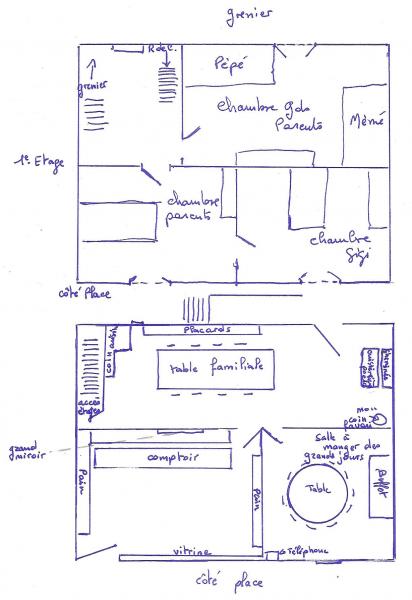 grenier
R de C.
grenier
Pépé
chambre gds
Parents
Mémé
1e Etage
chambre
parents
chambre
Gigi
côté Place
placards
table familiale
cheminée
accès
étages
mon
coin
favori
grand
miroir
salle à
manger des
grands jours
comptoir
Pain
Pain
Table
Buffet
vitrine
téléphone
côté place